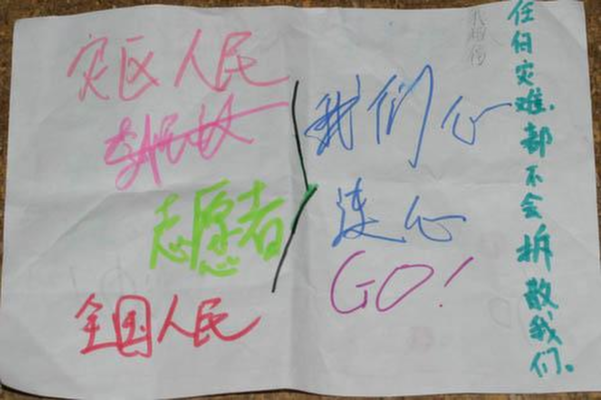 灾区人民
志愿者
全国人民
我们心
连心
GO!
任何灾难都不会拆散我们。